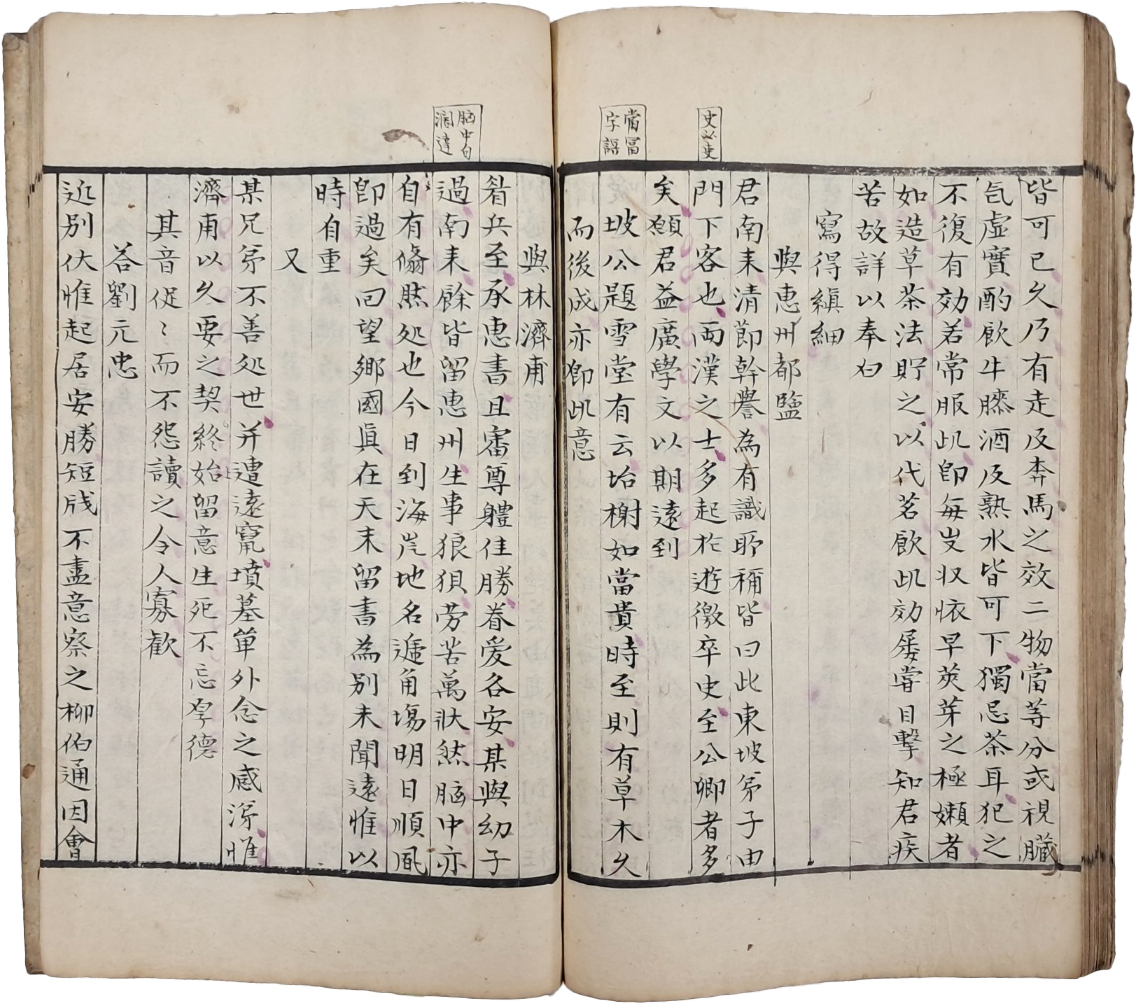 皆可已久乃有走及奔馬之效二物當等分或視臟
氣虛實酌飲牛膝酒及熟水皆可下獨忌茶耳犯之
不復有効若常服此即每歲収恢早莢芽之極嫩者
如造草茶法貯之以代茗飲此効屡嘗目擊知君疾
苦故詳以奉白
寫得縝細
與惠州都監
君南耒清節幹譽為有識所稱皆曰此東坡弟子由
門下客也両漢之士多起於遊徼卒史至公卿者多
矣願君益廣學文以期遠到
坡公題雪堂有云坮榭如當貴時至則有草木久
而後成亦即此意
史必吏
當冨
字誤
與林濟甫
眷兵至承惠書且審尊體佳勝眷愛各安某與幼子
過南耒餘皆留惠州生事狼狽劳苦萬狀然脑中亦
自有翛然処也今日到海岸地名遞角塲明日順風
即過矣回望鄉國真在天末留書為别未聞遠惟以
時自重
又
某兄弟不善処世并遭遠竄墳墓单外念之感涕惟
濟甫以久要之契終始留意生死不忘厚德
其音促〻而不怨讀之令人寡歡
荅劉元忠
近别伏惟起居安勝短牋不盡意察之柳伯通因會
脑中句
濶達